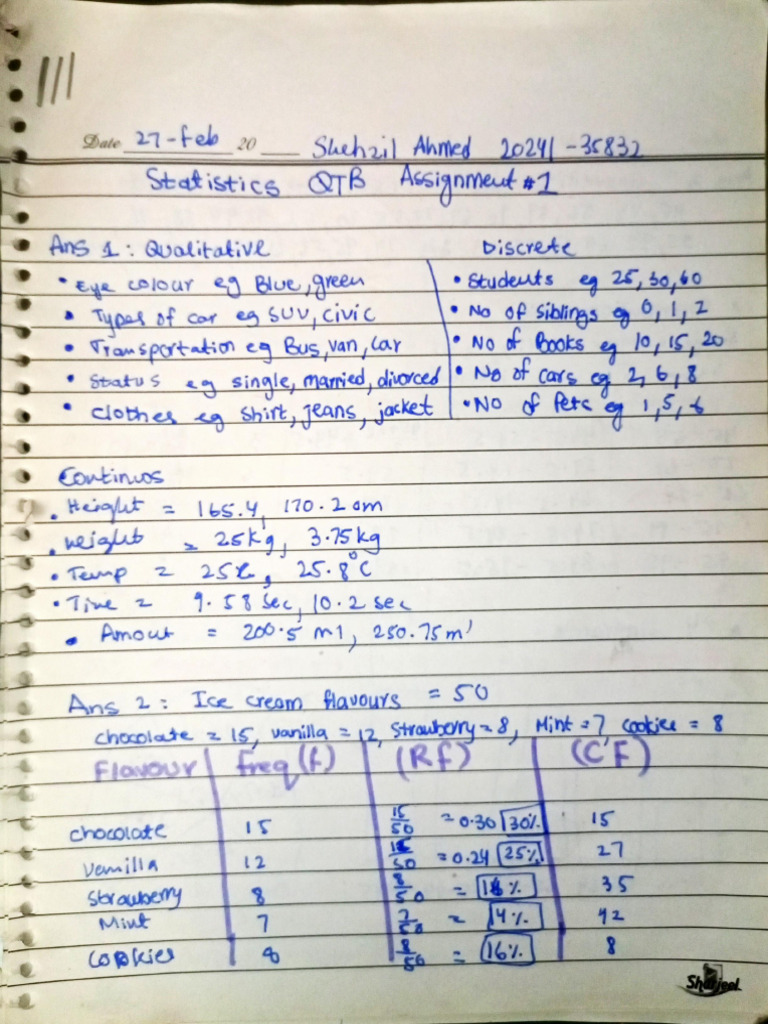 Date 27-Feb 20 Shehzil Ahmed 20241-35832
Statistics QTB Assignment #1
Ans 1: Qualitative Discrete
• Eye colour eg Blue, green • Students eg 25, 30, 60
• Types of car eg SUV, civic • No of siblings eg 0, 1, 2
• Transportation eg Bus, van, car • No of Books eg 10, 15, 20
• Status eg single, married, divorced • No of cars eg 2, 6, 8
• Clothes eg shirt, jeans, jacket • No of Pets eg 1, 5, 6
Continuos
• Height = 165.4, 170.2 cm
• weight = 25kg, 3.75kg
• Temp = 25, 25.8°C
• Time = 9.58 sec, 10.2 sec
• Amout = 200.5 ml, 250.75 ml
Ans 2: Ice cream flavours = 50
chocolate = 15, vanilla = 12, Strawberry = 8, Mint = 7, cookies = 8
Flavour freq (f) (Rf) (CF)
chocolate 15 15/50 = 0.30 30% 15
Vanilla 12 12/50 = 0.24 25% 27
Strawberry 8 8/50 = 16% 35
Mint 7 7/50 = 14% 42
cookies 8 8/50 = 16% 8
Sharjeel